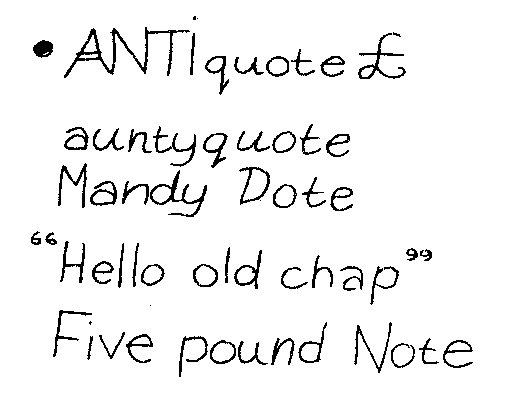 • ANTIquote£
auntyquote
Mandy Dote
“Hello old chap”
Five pound Note